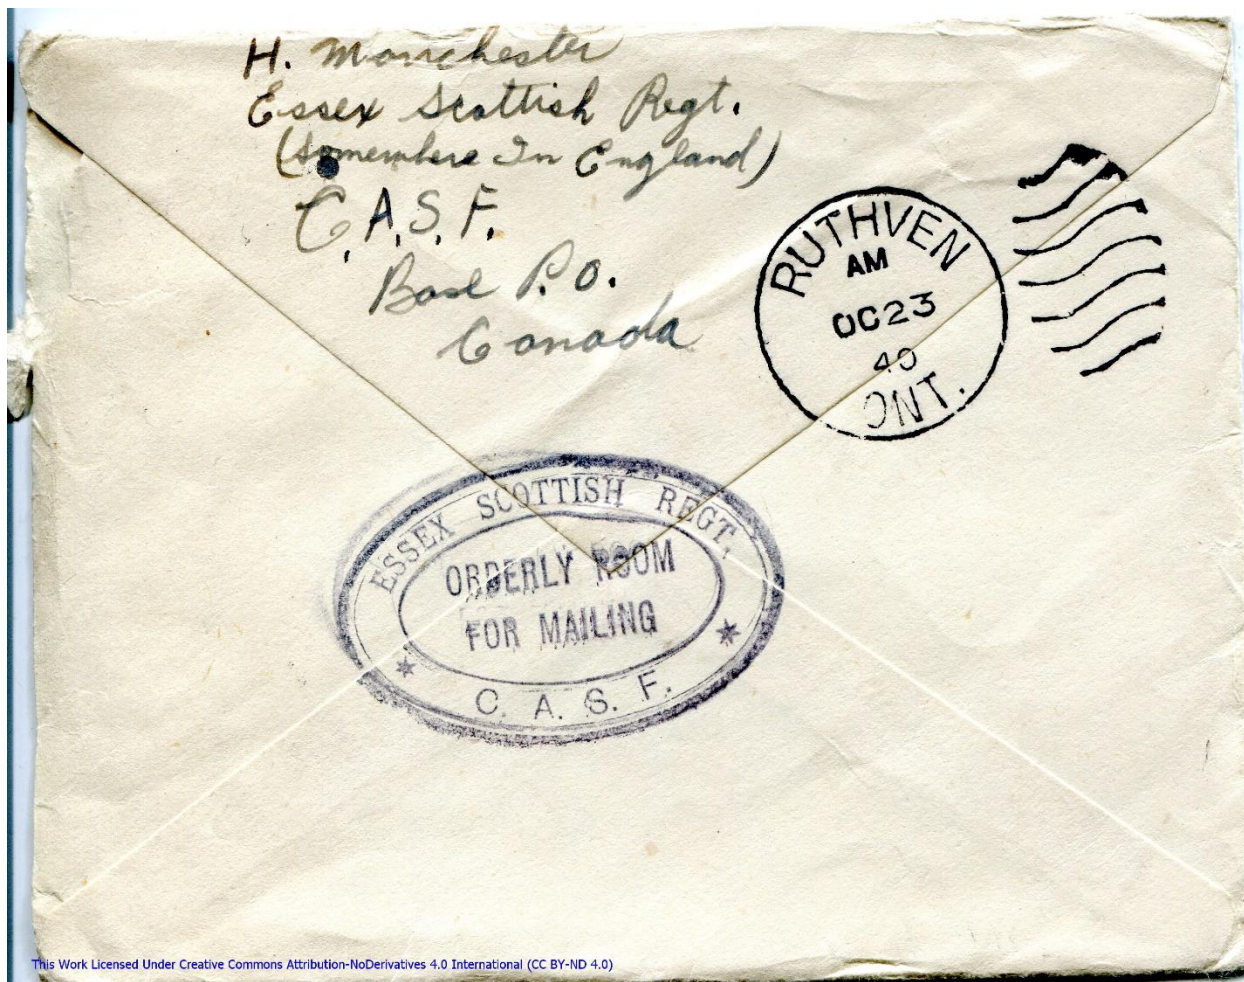 H. Manchester
Essex Scottish Regt.
(Somewhere In England)
C.A.S.F.
Base P.O.
Canada
RUTHVEN
AM
OC23
40
ONT.
ESSEX SCOTTISH REGT.
ORDERLY ROOM
FOR MAILING
* C. A. S. F. *
This Work Licensed Under Creative Commons Attribution-NoDerivatives 4.0 International (CC BY-ND 4.0)